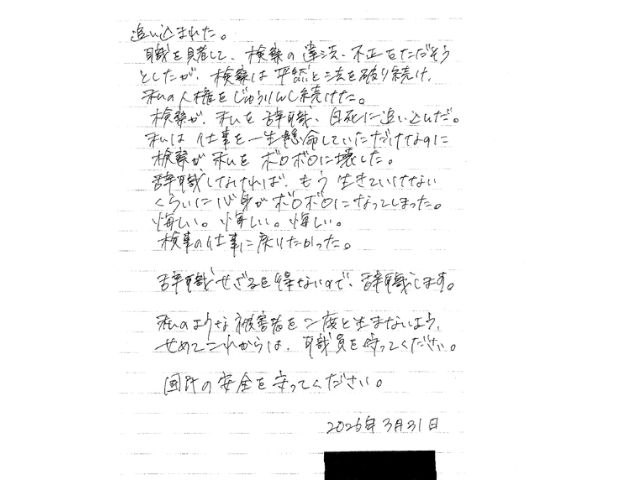 追い込まれた。
職を賭して、検察の違法、不正をただそう
としたが、検察は平然と法を破り続け、
私の人権をじゅうりんし続けた。
検察が、私を辞職、自死に追い込んだ。
私は仕事を一生懸命していただけなのに
検察が私をボロボロに壊した。
辞職しなければ、もう生きていけない
くらいに心身がボロボロになってしまった。
悔しい。悔しい。悔しい。
検事の仕事に戻りたかった。
辞職せざるを得ないので、辞職します。
私のような被害者を二度と生まないよう、
せめてこれからは、職員を守ってください。
国民の安全を守ってください。
2026年3月31日